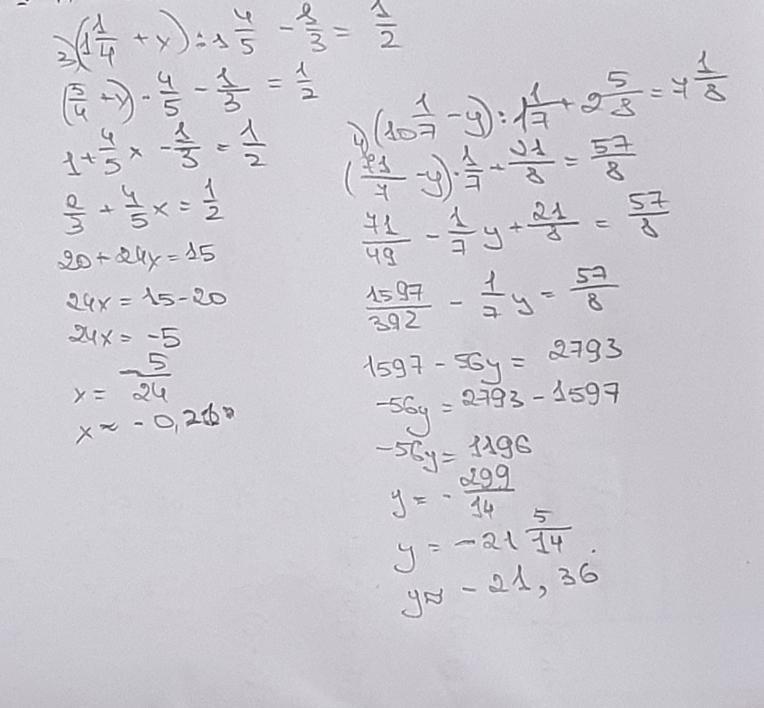 3) (1 1/4 + x) : 1 4/5 - 1/3 = 1/2
(5/4 + x) · 4/5 - 1/3 = 1/2
1 + 4/5 x - 1/3 = 1/2
2/3 + 4/5 x = 1/2
20 + 24x = 15
24x = 15 - 20
24x = -5
x = -5/24
x ≈ - 0,2
4) (10 1/7 - y) : 1 1/7 + 2 5/8 = 7 1/8
(71/7 - y) · 1/7 + 21/8 = 57/8
71/49 - 1/7 y + 21/8 = 57/8
1597/392 - 1/7 y = 57/8
1597 - 56y = 2793
-56y = 2793 - 1597
-56y = 1196
y = - 299/14
y = - 21 5/14
y ≈ - 21,36